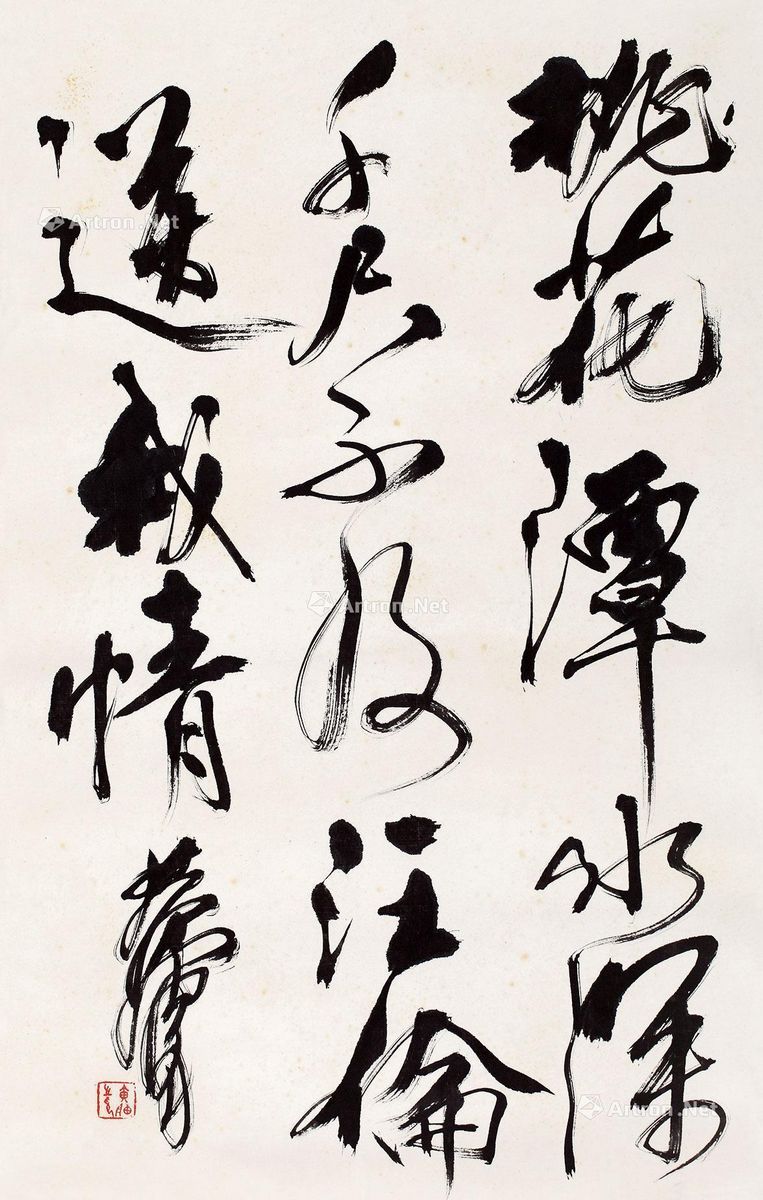 桃花潭水深
千尺不及汪倫
送我情 黃胄
Artron.Net
Artron.Net
Artron.Net